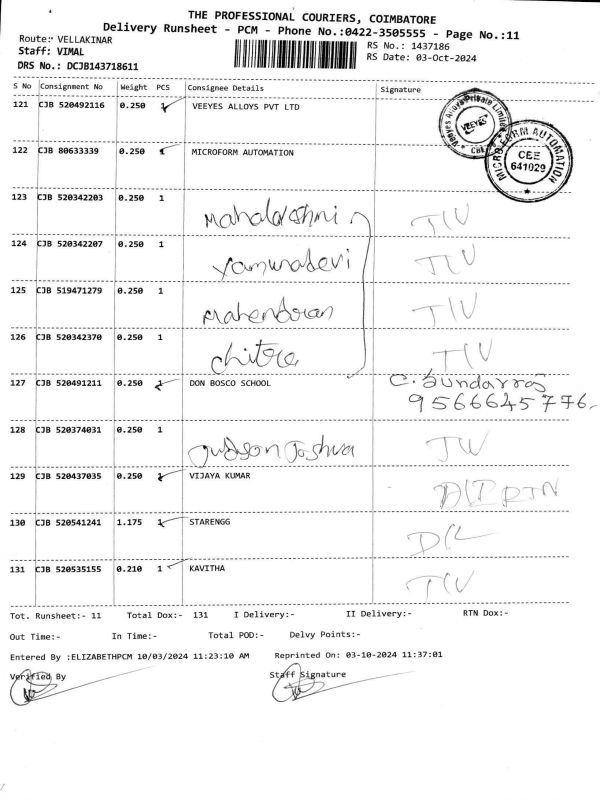 THE PROFESSIONAL COURIERS, COIMBATORE
Delivery Runsheet - PCM - Phone No.:0422-3505555 - Page No.:11
Route:- VELLAKINAR
Staff: VIMAL
RS No.: 1437186
RS Date: 03-Oct-2024
DRS No.: DCJB143718611
S No Consignment No Weight PCS Consignee Details Signature
121 CJB 520492116 0.250 1 VEEYES ALLOYS PVT LTD
Veeyes Alloys Private Limited
VEEYES
122 CJB 80633339 0.250 1 MICROFORM AUTOMATION
MICRO FORM AUTOMATION
CBE
641029
123 CJB 520342203 0.250 1 Mahalakshmi
124 CJB 520342207 0.250 1 Yamunadevi
125 CJB 519471279 0.250 1 Mahendran
126 CJB 520342370 0.250 1 Chitra
127 CJB 520491211 0.250 1 DON BOSCO SCHOOL C. Sundarraj
9566645776
128 CJB 520374031 0.250 1 Judson Joshva
129 CJB 520437035 0.250 1 VIJAYA KUMAR
130 CJB 520541241 1.175 1 STARENGG D/L
131 CJB 520535155 0.210 1 KAVITHA
Tot. Runsheet:- 11 Total Dox:- 131 I Delivery:- II Delivery:- RTN Dox:-
Out Time:- In Time:- Total POD:- Delvy Points:-
Entered By :ELIZABETHPCM 10/03/2024 11:23:10 AM Reprinted On: 03-10-2024 11:37:01
Verified By Staff Signature